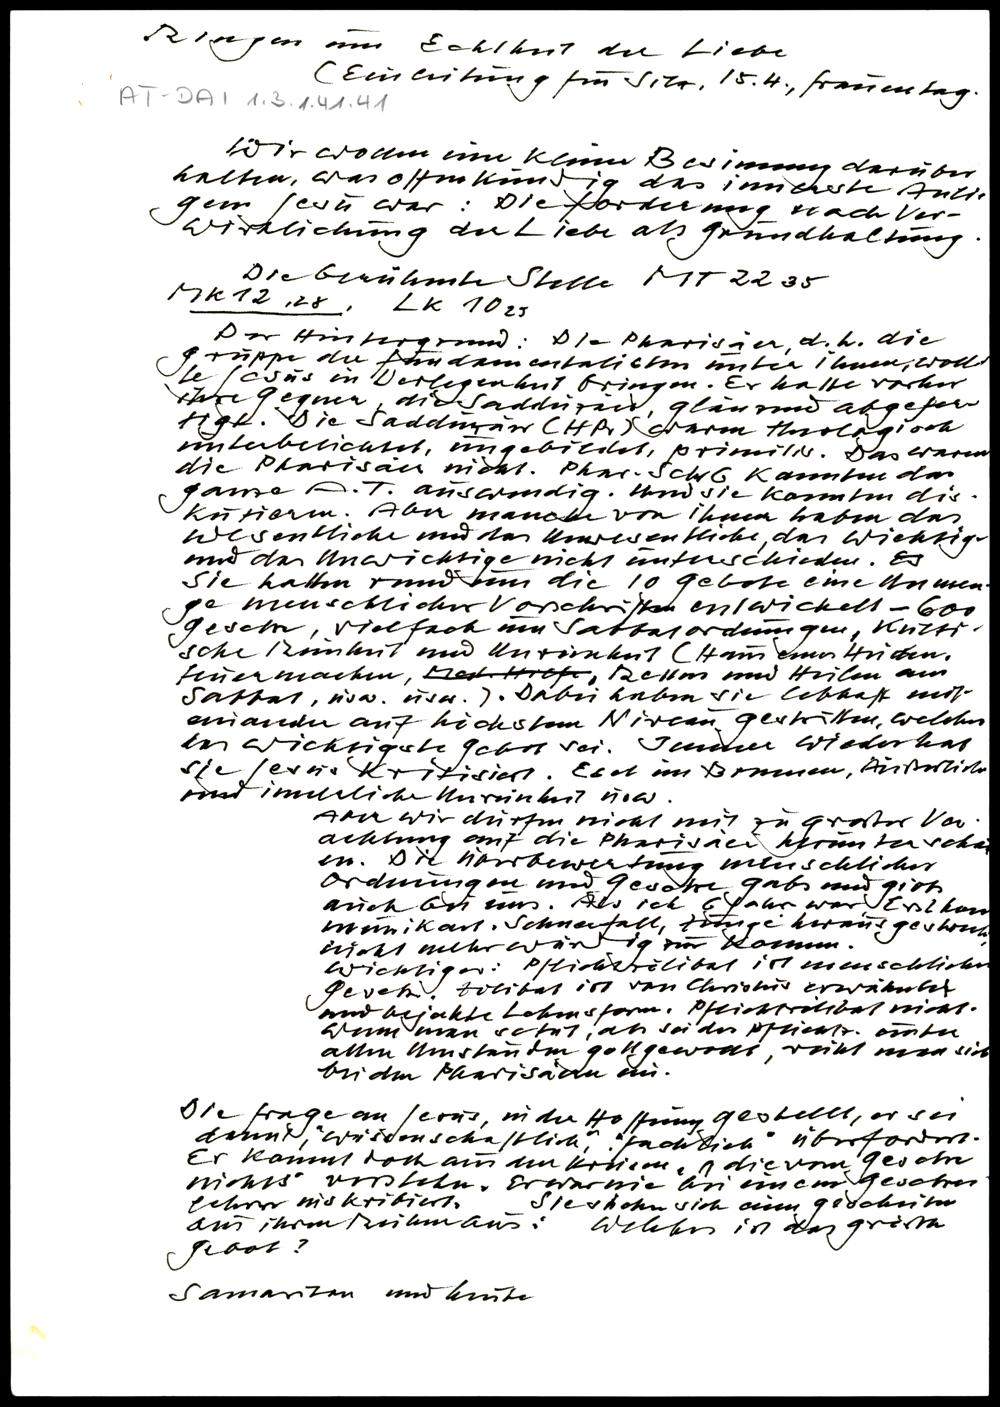 Ringen um Echtheit der Liebe
(Einleitung für Silz, 15.4., Frauentag.
AT-DAI 1.3.1.41.41
Wir wollen eine kleine Besinnung darüber
halten, was offenkündig das innerste Anlie-
gen Jesu war: Die Forderung nach Ver-
wirklichung der Liebe als Grundhaltung.
Die berühmte Stelle MT 22 35
Mk 12,28, Lk 10 25
Der Hintergrund: Die Pharisäer, d.h. die
Gruppe der Fundamentalisten unter ihnen, woll-
te Jesus in Verlegenheit bringen. Er hatte vorher
ihre Gegner, die Sadduzäer, glänzend abgefer-
tigt. Die Sadduzäer (HPr) waren theologisch
unterbelichtet, ungebildet, primitiv. Das waren
die Pharisäer nicht. Phar. SchrG kannten das
ganze A.T. auswendig. Und sie konnten dis-
kutieren. Aber manche von ihnen haben das
Wesentliche und das Unwesentliche, das Wichtige
und das Unwichtige nicht unterschieden. Es
Sie hatten rund um die 10 Gebote eine Unmen-
ge menschlicher Vorschriften entwickelt – 600
Gesetze, vielfach um Sabbatordnungen, Kulti-
sche Reinheit und Unreinheit (Haus eines Heiden,
Feuermachen, Retten und Heilen am
Sabbat, usw. usw.). Dabei haben sie lebhaft mit-
einander auf höchstem Niveau gestritten, welches
das wichtigste Gebot sei. Immer wieder hat
sie Jesus kritisiert. Esel im Brunnen, Äusserliche
und innerliche Unreinheit usw.
Aber wir dürfen nicht mit zu grosser Ver-
achtung auf die Pharisäer herunterschau-
en. Die Überbewertung menschlicher
Ordnungen und Gesetze gabs und gibts
auch bei uns. Als ich 6 Jahr war Erstkom
munikant. Schneefall, Zunge herausgestreckt,
nicht mehr würdig zur Komm.
Wichtiger: Pflichtzölibat ist menschliches
Gesetz. Zölibat ist von Christus erwähnte
und bejahte Lebensform. Pflichtzölibat nicht.
Wenn man so tut, als sei der Pflichtz. unter
allen Umständen gottgewollt, reiht man sich
bei den Pharisäern ein.
Die Frage an Jesus, in der Hoffnung gestellt, er sei
damit "wissenschaftlich", "fachlich" überfordert.
Er kommt doch aus den Kreisen, "die vom Gesetze
nichts" verstehn. Er war nie bei einem Gesetzes-
lehrer inskribiert. Sie suchen sich einen gescheiten
aus ihren Reihen aus: Welches ist das grösste
Gebot?
Samaritan und heute